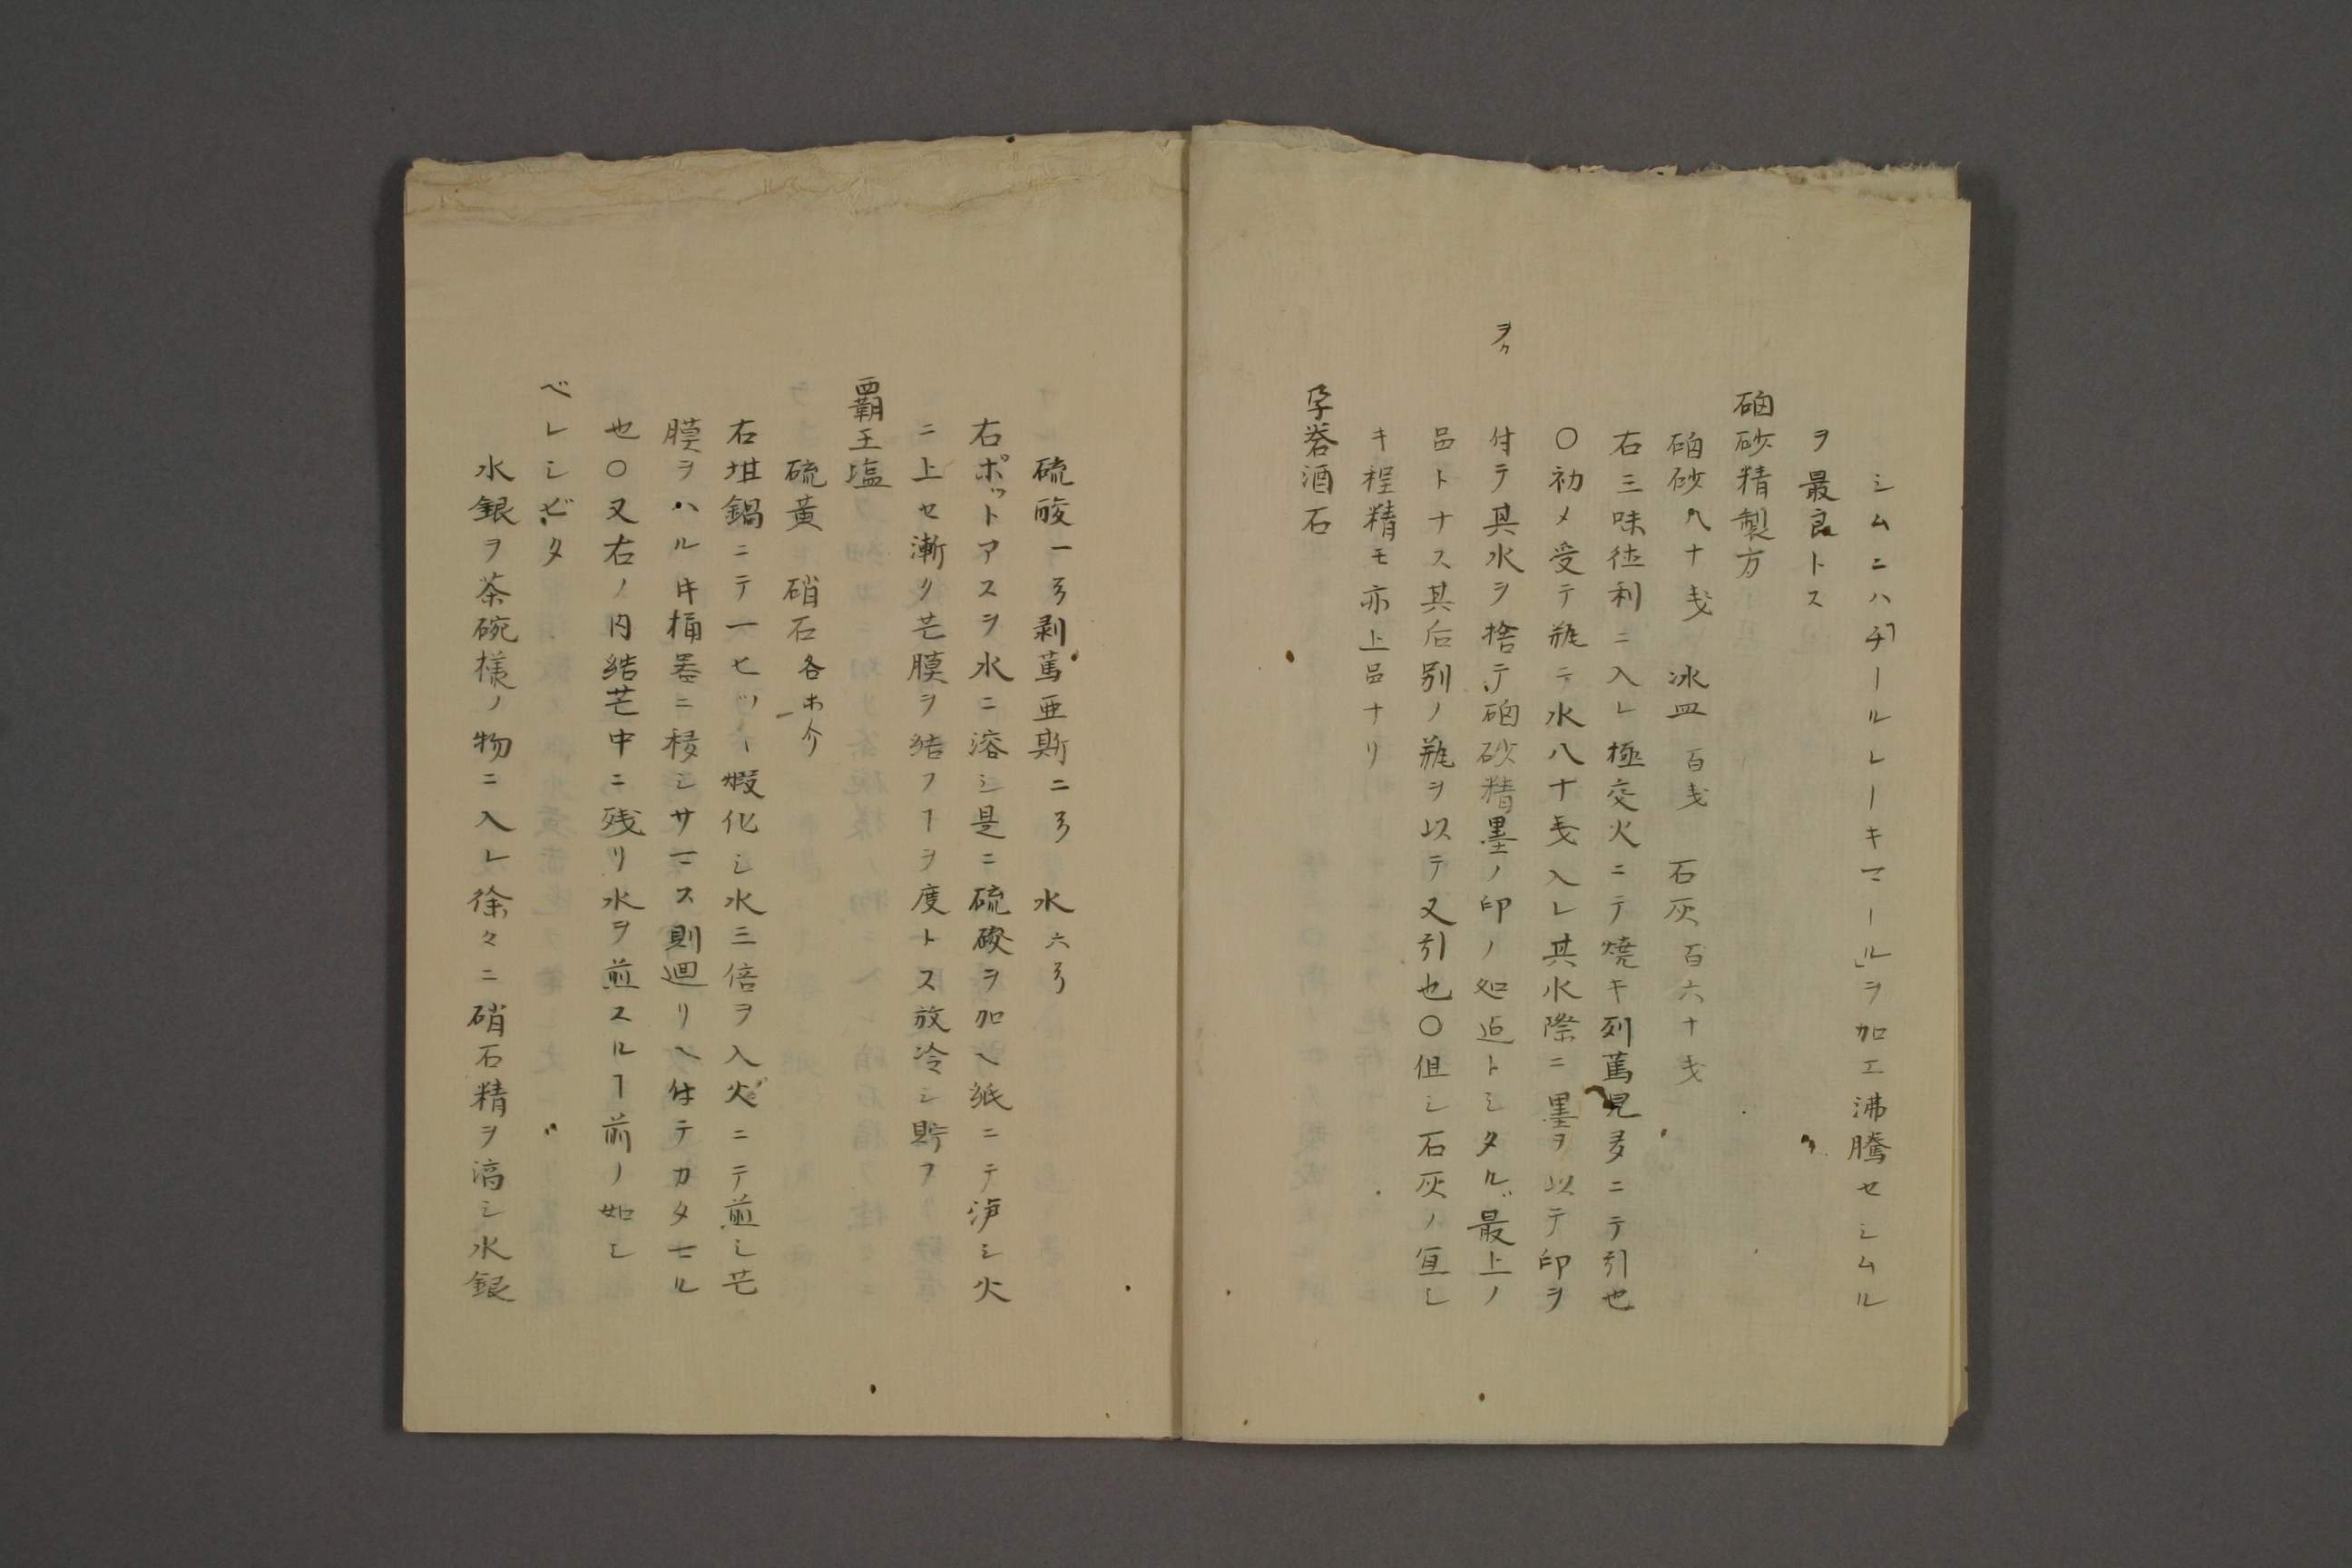 シムニハ「チールレーキマール」ヲ加エ沸騰セシムル
ヲ最良トス
硇砂精製方
硇砂八十戔 冰皿百戔 石灰百六十戔
右三味徳利ニ入レ極文火ニテ焼キ列篤児多ニテ引也
〇初メ受テ瓶ニ水八十戔入レ其水際ニ墨ヲ以テ印ヲ
付テ其水ヲ捨テ硇砂精墨ノ印ノ如迠トシタルヲ最上ノ
品トナス其后別ノ瓶ヲ以テ又引也〇但シ石灰ノ宜シ
キ程精モ亦上品ナリ
孕礬酒石
硫酸一ヲ剥篤亜斯二ヲ 水六ヲ
右ポットアスヲ水ニ溶シ是ニ硫酸ヲ加ヘ紙ニテ沪シ火
ニ上セ漸リ芒膜ヲ結フヿヲ度トス放冷シ貯フ
覇王塩
硫黄 硝石各ホ分
右坩鍋ニテ一ヒツヽ煆化シ水三倍ヲ入火ニテ煎シ芒
膜ヲハル時桶器ニ移シサマス則廻リヘ付テカタマル
也〇又右ノ内結芒中ニ残リ水ヲ煎スルヿ前ノ如シ
ベレシピタ
水銀ヲ茶碗様ノ物ニ入レ徐々ニ硝石精ヲ滴シ水銀